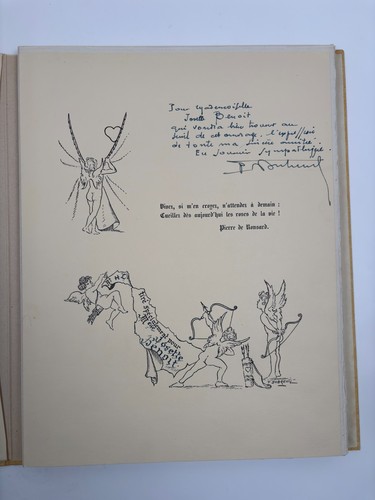 Pour Mademoiselle
Josette Benoit
qui voudra bien trouver au
seuil de cet ouvrage, l'expression
de toute ma sincère amitié.
En Souvenir Sympathique
Vivez, si m'en croyez, n'attendez à demain :
Cueillez dès aujourd'hui les roses de la vie !
Pierre de Ronsard.
tiré spécialement pour
Josette
Benoit